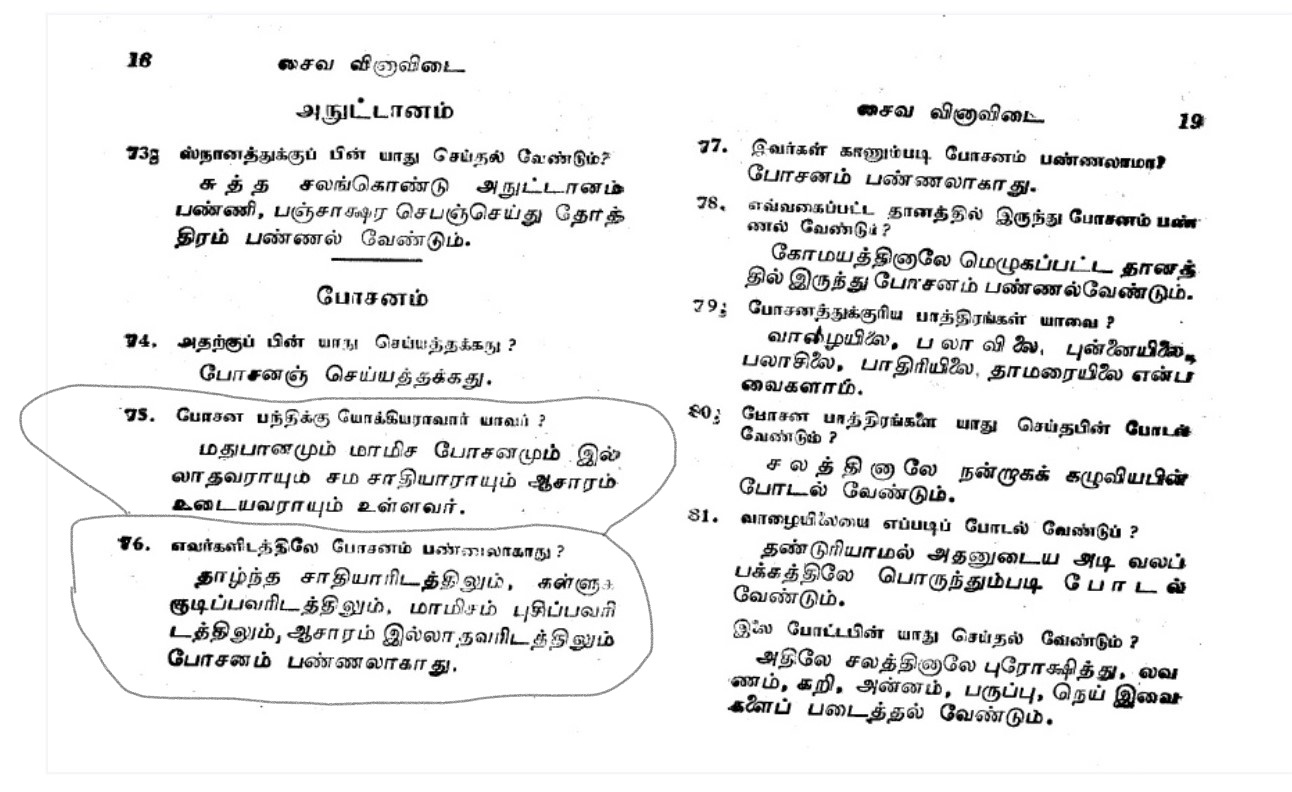 18
சைவ வினாவிடை
அநுட்டானம்
73. ஸ்நானத்துக்குப் பின் யாது செய்தல் வேண்டும்?
சுத்த சலங்கொண்டு அநுட்டானம்
பண்ணி, பஞ்சாக்ஷர செபஞ்செய்து தோத்
திரம் பண்ணல் வேண்டும்.
போசனம்
74. அதற்குப் பின் யாது செய்யத்தக்கது ?
போசனஞ் செய்யத்தக்கது.
75. போசன பந்திக்கு யோக்கியராவார் யாவர் ?
மதுபானமும் மாமிச போசனமும் இல்
லாதவராயும் சம சாதியாராயும் ஆசாரம்
உடையவராயும் உள்ளவர்.
76. எவர்களிடத்திலே போசனம் பண்ணலாகாது ?
தாழ்ந்த சாதியாரிடத்திலும், கள்ளுக்
குடிப்பவரிடத்திலும், மாமிசம் புசிப்பவரி
டத்திலும், ஆசாரம் இல்லாதவரிடத்திலும்
போசனம் பண்ணலாகாது.
சைவ வினாவிடை
19
77. இவர்கள் காணும்படி போசனம் பண்ணலாமா?
போசனம் பண்ணலாகாது.
78. எவ்வகைப்பட்ட தானத்தில் இருந்து போசனம் பண்
ணல் வேண்டும் ?
கோமயத்தினாலே மெழுகப்பட்ட தானத்
தில் இருந்து போசனம் பண்ணல்வேண்டும்.
79. போசனத்துக்குரிய பாத்திரங்கள் யாவை ?
வாழையிலை, பலாவிலை, புன்னையிலை,
பலாசிலை, பாதிரியிலை, தாமரையிலை என்ப
வைகளாம்.
80. போசன பாத்திரங்களை யாது செய்தபின் போடல்
வேண்டும் ?
சலத்தினாலே நன்றாகக் கழுவியபின்
போடல் வேண்டும்.
81. வாழையிலையை எப்படிப் போடல் வேண்டும் ?
தண்டுரியாமல் அதனுடைய அடி வலப்
பக்கத்திலே பொருந்தும்படி போடல்
வேண்டும்.
இலை போட்டபின் யாது செய்தல் வேண்டும் ?
அதிலே சலத்தினாலே புரோக்ஷித்து, லவ
ணம், கறி, அன்னம், பருப்பு, நெய் இவை
களைப் படைத்தல் வேண்டும்.